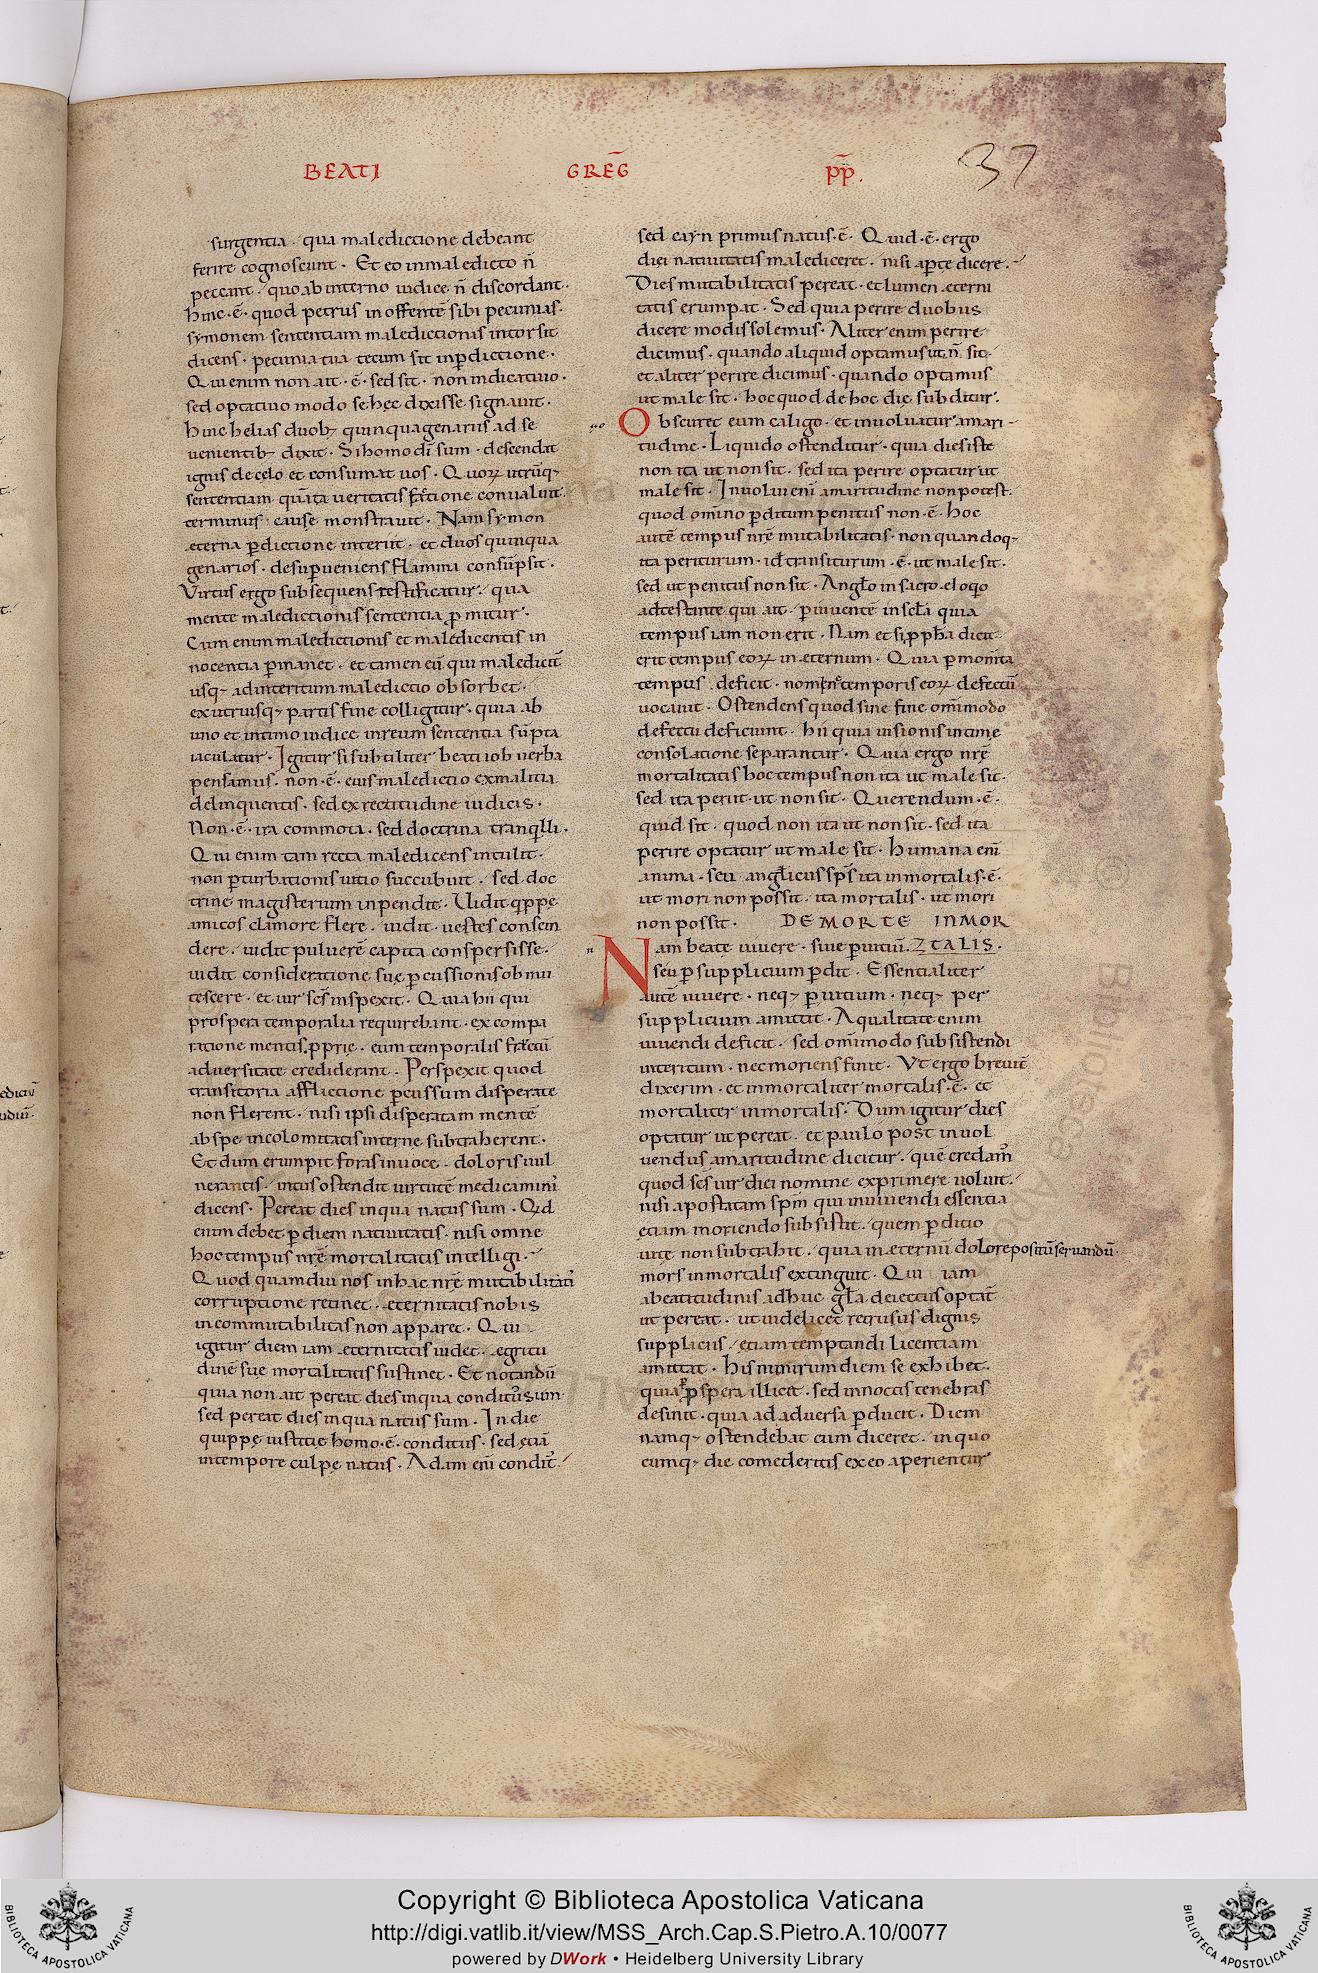 BEATI GREḠ p̄p.
37
surgentia · qua maledictione debeant
ferire cognoscunt · Et eo inmaledicto n̄
peccant · quo ab interno iudice n̄ discordant ·
hinc · ē · quod petrus in offerentē sibi pecunias ·
symonem sententiam maledictionis intorsit
dicens · pecunia tua tecum sit inp̱ditione ·
Qui enim non ait · ē · sed sit · non indicatiuo ·
sed optatiuo modo se hęc dixisse signauit ·
hinc helias duobꝫ quinquagenarius ad se
uenientibꝫ dixit · Si homo dī sum · descendat
ignis de celo et consumat uos · Quoꝝ utrūqꝫ
sententiam quāta ueritatis ratione conualuit ·
terminus cause monstrauit · Nam symon
eterna p̱dictione interiit · et duos quinqua
genarios · desup̱ueniens flamma consūpsit ·
Virtus ergo subsequens testificatur · qua
mente maledictionis sententia p̱mitur ·
Cum enim maledictionis et maledicentis in
nocentia p̱manet · et tamen eū qui maledicit̄
usqꝫ ad interitum maledictio obsorbet ·
ex utriusqꝫ partis fine colligitur · quia ab
uno et intimo iudice inreum sententia sūpta
iaculatur · Igitur si subtiliter beati iob uerba
pensamus · non · ē · eius maledictio ex malitia
delinquentis · sed ex rectitudine iudicis ·
Non · ē · ira commota · sed doctrina tranqͥlli ·
Qui enim tam recta maledicens intulit ·
non p̱turbationis uitio succubuit · sed doc
trinę magisterium inpendit · Uidit qͥppe
amicos clamore flere · uidit uestes conscin
dere · uidit puluerē capita conspersisse ·
uidit consideratione suę p̱cussionis obmu
tescere · et uir scs̄ inspexit · Quia hii qui
prospera temporalia requirebant · ex compa
ratione mentis p̱prię · eum temporalis fractū
aduersitate crediderant · Perspexit quod
transitoria afflictione p̱cussum disperate
non flerent · nisi ipsi disperatam mentē
ab spe incolomitatis interne subtraherent ·
Et dum erumpit foras inuoce · doloris uul
nerantis · intus ostendit uirtutē medicamini
dicens · Pereat dies inqua natus sum · Qͥd
enim debet p̱ diem natiuitatis · nisi omne
hoc tempus nr̄ę mortalitatis intelligi ·
Quod quamdiu nos in hac nr̄ę mutabilitati
corruptione retinet · eternitatis nobis
incommutabilitas non apparet · Qui
igitur diem iam eternitatis uidet · egritu
dinē sue mortalitatis sustinet · Et notandū
quia non ait pereat dies inqua conditus sum ·
sed pereat dies inqua natus sum · In die
quippę iustitię homo · ē · conditus · sed ęciā
intempore culpę natus · Adam enī condit᷒ ·
sed cayn primus natus · ē · Quid · ē · ergo
diei natiuitatis malediceret · nisi ap̱te dicere ·
Dies mutabilitatis pereat · et lumen eterni
tatis erumpat · Sed quia perire duobus
dicere modis solemus · Aliter enim perire
dicimus · quando aliquid optamus ut n̄ sit ·
et aliter perire dicimus · quando optamus
ut male sit · hoc quod de hoc die subditur ·
Obscuret eum caligo · et inuoluatur amari
tudine · Liquido ostenditur · quia dies iste
non ita ut non sit · sed ita perire optatur ut
male sit · Inuolui enī amaritudine non potest ·
quod omīno p̱ditum penitus non · ē · hoc
autē tempus nr̄ę mutabilitatis · non quandoqꝫ
ita periturum · id transiturum · ē · ut male sit ·
sed ut penitus non sit · Anglo in sacro eloqͦ
adtestante qui ait · p̱ uiuentē in scl̄a quia
tempus iam non erit · Nam et si p̱ph̄a dicit ·
erit tempus eoꝝ in eternum · Quia p̱ momīta
tempus deficit · nomine temporis eoꝝ defectū
uocauit · Ostendens quod sine fine omīmodo
defectu deficiunt · hii quia uisionis intimę
consolatione separantur · Quia ergo nr̄ę
mortalitatis hoc tempus non ita ut male sit ·
sed ita periit ut non sit · Querendum · ē ·
quid sit · quod non ita ut non sit · sed ita
perire optatur ut male sit · humana enī
anima · seu anglicus sps̄ ita inmortalis · ē ·
ut mori non possit · ita mortalis · ut mori
non possit · DE MORTE INMOR
TALIS ·
Nam beatę uiuere · siue p̱ uitiū ·
seu p̱ supplicium p̱dit · Essentialiter
autē uiuere · neqꝫ p̱ uitium · neqꝫ per
supplicium amittit · A qualitate enim
uiuendi deficit · sed omīmodo subsistendi
interitum · nec moriens finit · Vt ergo breuit̄
dixerim · et inmortaliter mortalis · ē · et
mortaliter inmortalis · Dum igitur dies
optatur ut pereat · et paulo post inuol
uendus amaritudine dicitur · quē credam᷒
quod scs̄ uir diei nomine exprimere uoluit ·
nisi apostatam spm̄ qui inuiuendi essentia
etiam moriendo subsistit · quem p̱ditio
uitę non subtrahit · quia in eternū dolore positū seruandū ·
mors inmortalis extinguit · Qui iam
a beatitudinis adhuc gl̄a deiectus optat̄
ut pereat · ut uidelicet retrusus dignis
suppliciis · etiam temptandi licentiam
amittat · His nimirum diem se exhibet ·
quia p̱spera illicit · sed in noctis tenebras
desinit · quia ad aduersa p̱ducit · Diem
namqꝫ ostendebat cum diceret · in quo
cumqꝫ die comederitis ex eo aperientur
Copyright © Biblioteca Apostolica Vaticana
http://digi.vatlib.it/view/MSS_Arch.Cap.S.Pietro.A.10/0077
powered by DWork • Heidelberg University Library
BIBLIOTECA APOSTOLICA VATICANA
BIBLIOTECA APOSTOLICA VATICANA